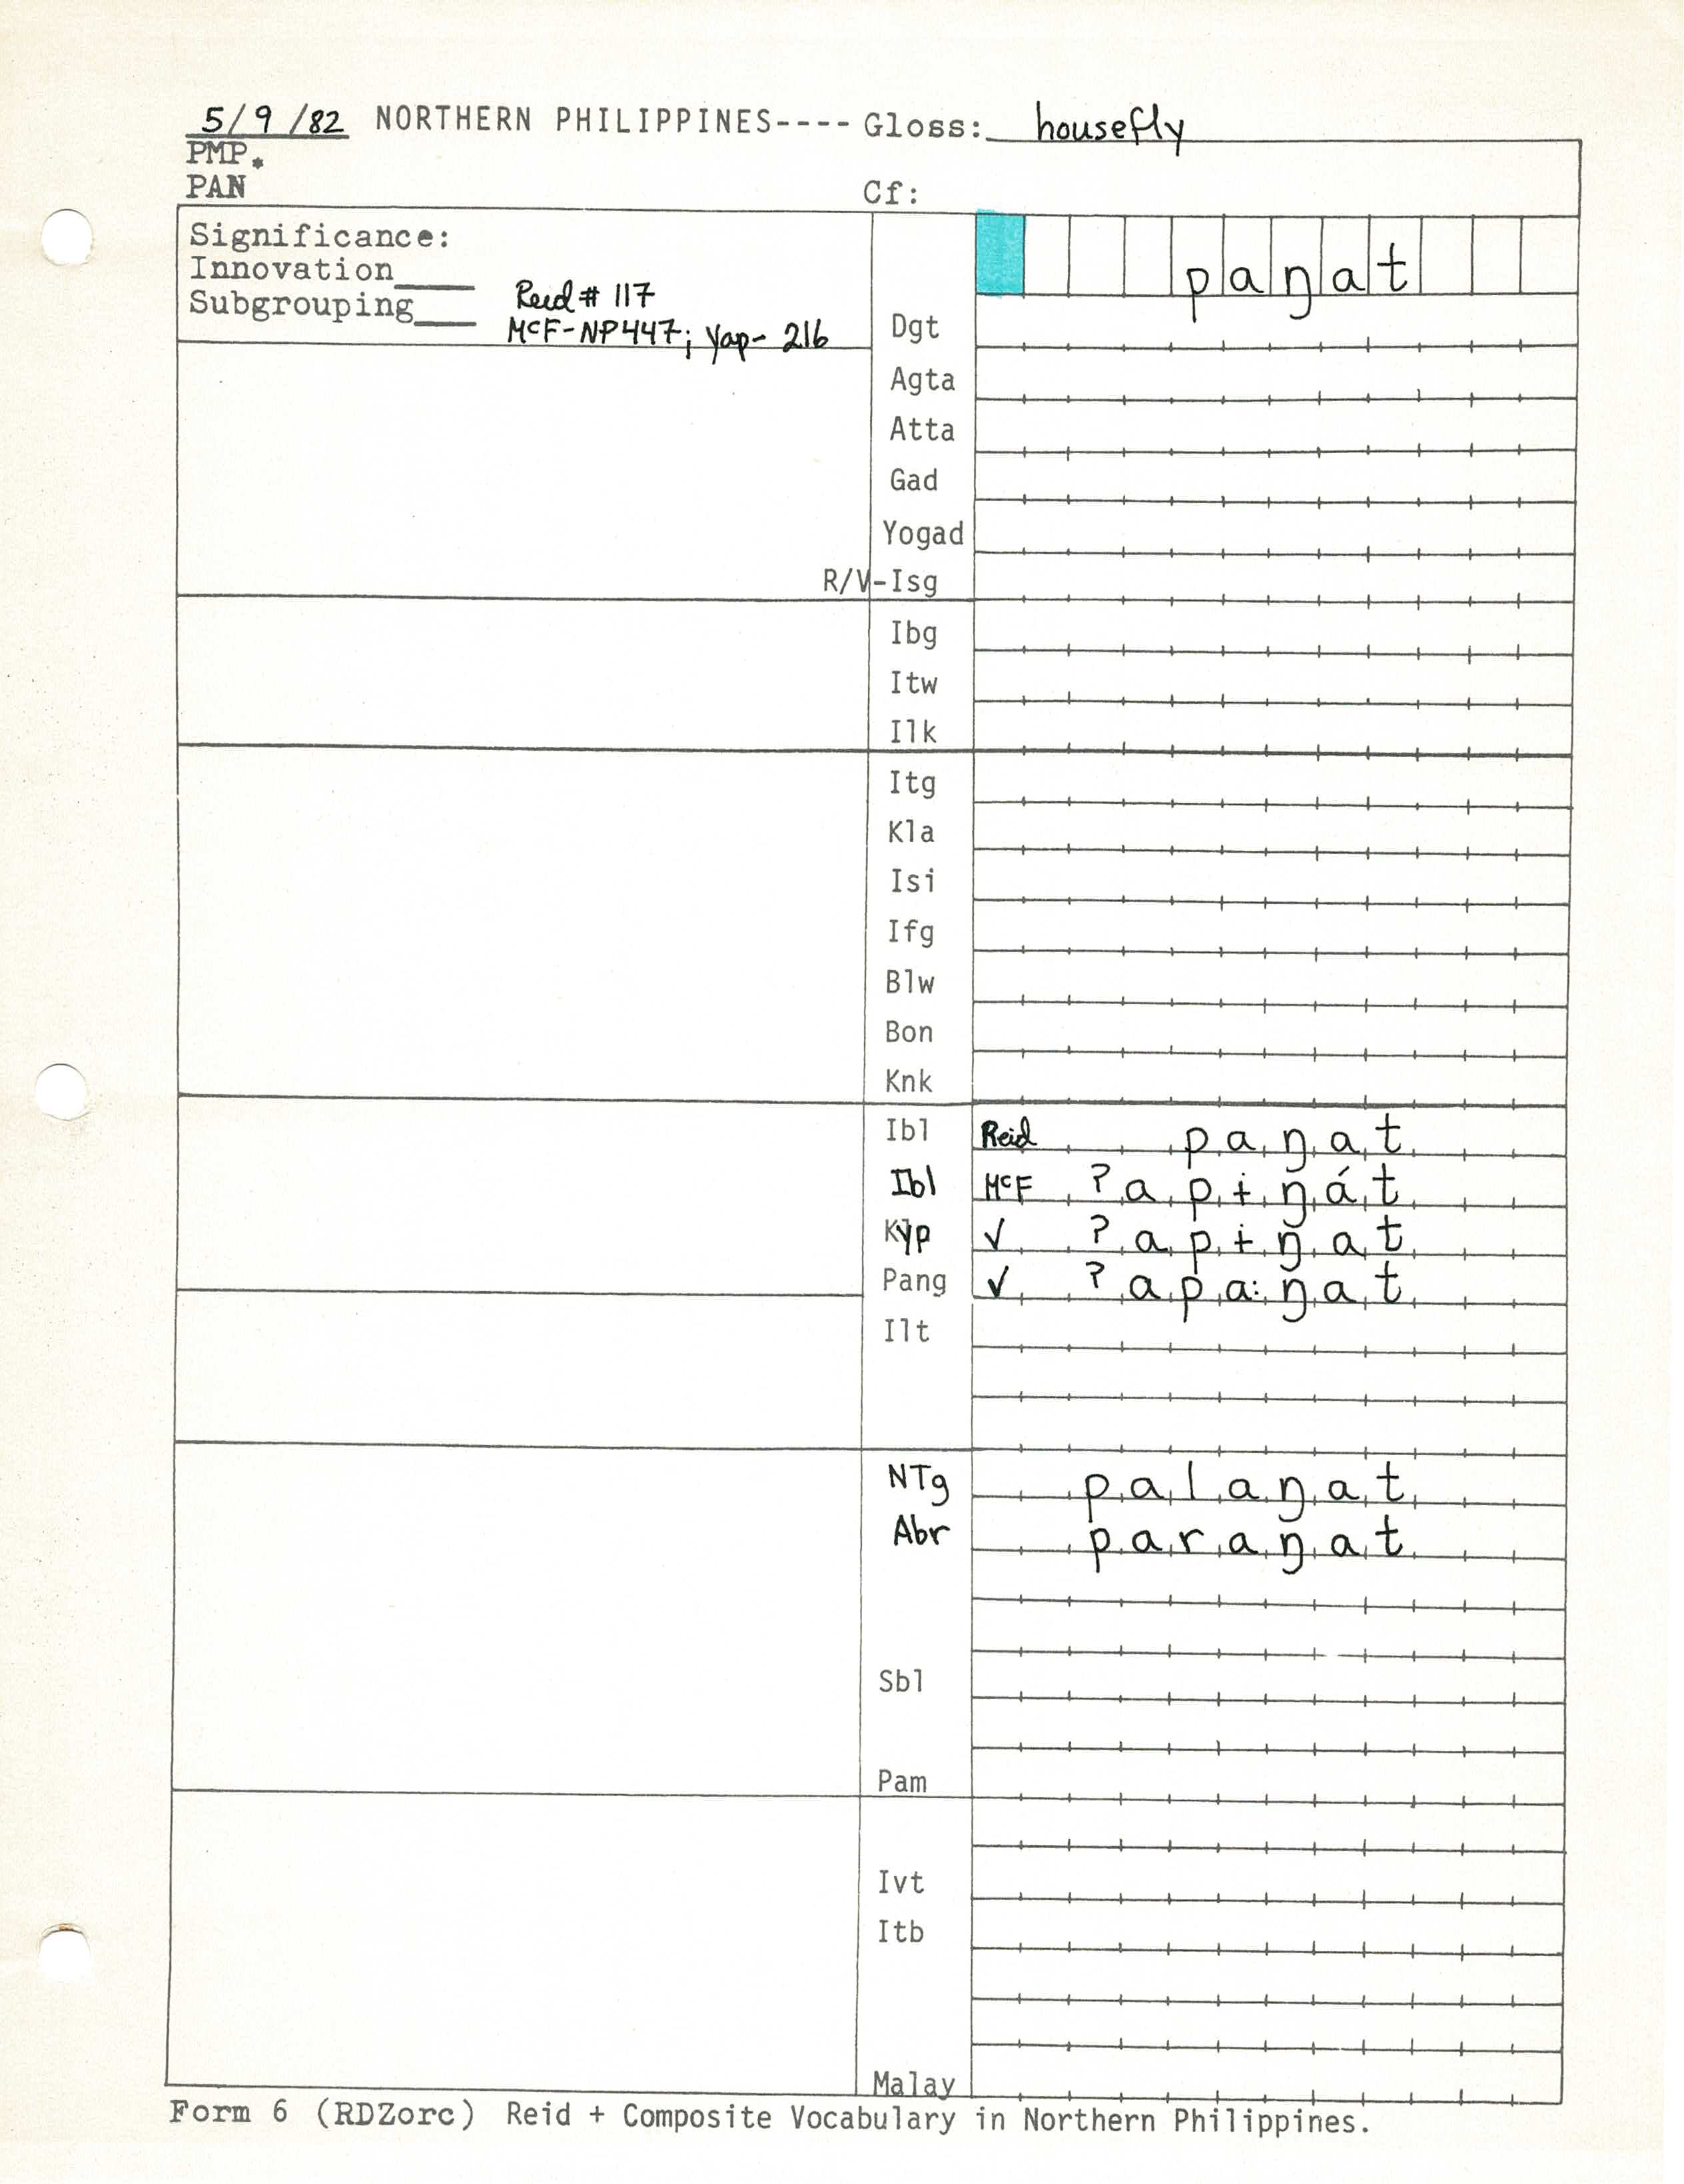 5/9/82 NORTHERN PHILIPPINES---- Gloss: housefly
PMP*
PAN Cf:
Significance:
Innovation____
Subgrouping____
Reid # 117
McF-NP447; Yap- 216
paŋat
Dgt
Agta
Atta
Gad
Yogad
R/V-Isg
Ibg
Itw
Ilk
Itg
Kla
Isi
Ifg
Blw
Bon
Knk
Ibl Reid paŋat
Ibl McF ʔapɨŋát
Kyp ✓ ʔapɨŋat
Pang ✓ ʔapa:ŋat
Ilt
NTg palaŋat
Abr paraŋat
Sbl
Pam
Ivt
Itb
Malay
Form 6 (RDZorc) Reid + Composite Vocabulary in Northern Philippines.